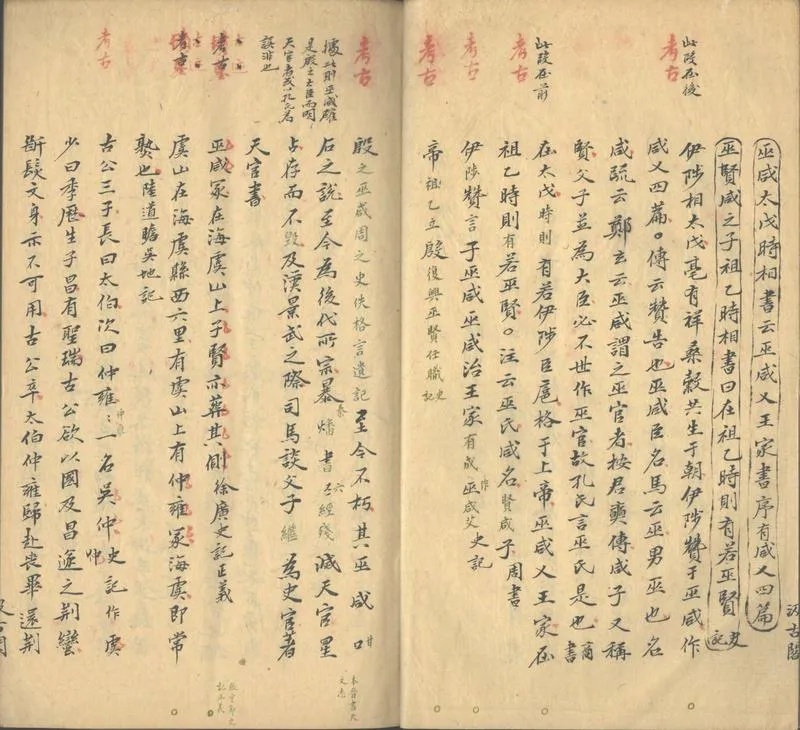 此段在後
考古
巫咸太戊時相書云巫咸乂王家書序有咸乂四篇
巫賢咸之子祖乙時相書曰在祖乙時則有若巫賢史記
伊陟相太戊亳有祥桑穀共生于朝伊陟贊于巫咸作
咸乂四篇。傳云贊告也巫咸臣名馬云巫男巫也名
咸疏云鄭玄云巫咸謂之巫官者按君奭傳咸子又稱
賢父子並為大臣必不世作巫官故孔氏言巫氏是也商書
此段在前
考古
在太戊時則有若伊陟臣扈格于上帝巫咸乂王家在
祖乙時則有若巫賢。注云巫氏咸名賢咸子周書
考古
伊陟贊言于巫咸巫咸治王家有成作巫咸艾史記
考古
帝祖乙立殷復興巫賢任職史記
汲古閣
考古
殷之巫咸周之史佚格言遺記至今不朽其巫咸甘
石之說至今為後代所宗暴秦燔書六經殘滅天官星
占存而不毀及漢景武之際司馬談父子繼為史官著
天官書
據此則巫咸確
是殷之大臣而明
天官者或以孔氏為
誤非也
本晉書天
文志
考古
巫咸冢在海虞山上子賢亦葬其側徐廣史記正義
考古
虞山在海虞縣西六里有虞山上有仲雍冢海虞即常
熟也陸道瞻吳地記
考古
古公三子長曰太伯次曰仲雍仲雍一名吳仲史記作虞仲
少曰季歷生子昌有聖瑞古公欲以國及昌遂之荊蠻
斷髮文身示不可用古公卒太伯仲雍歸赴喪畢還荊